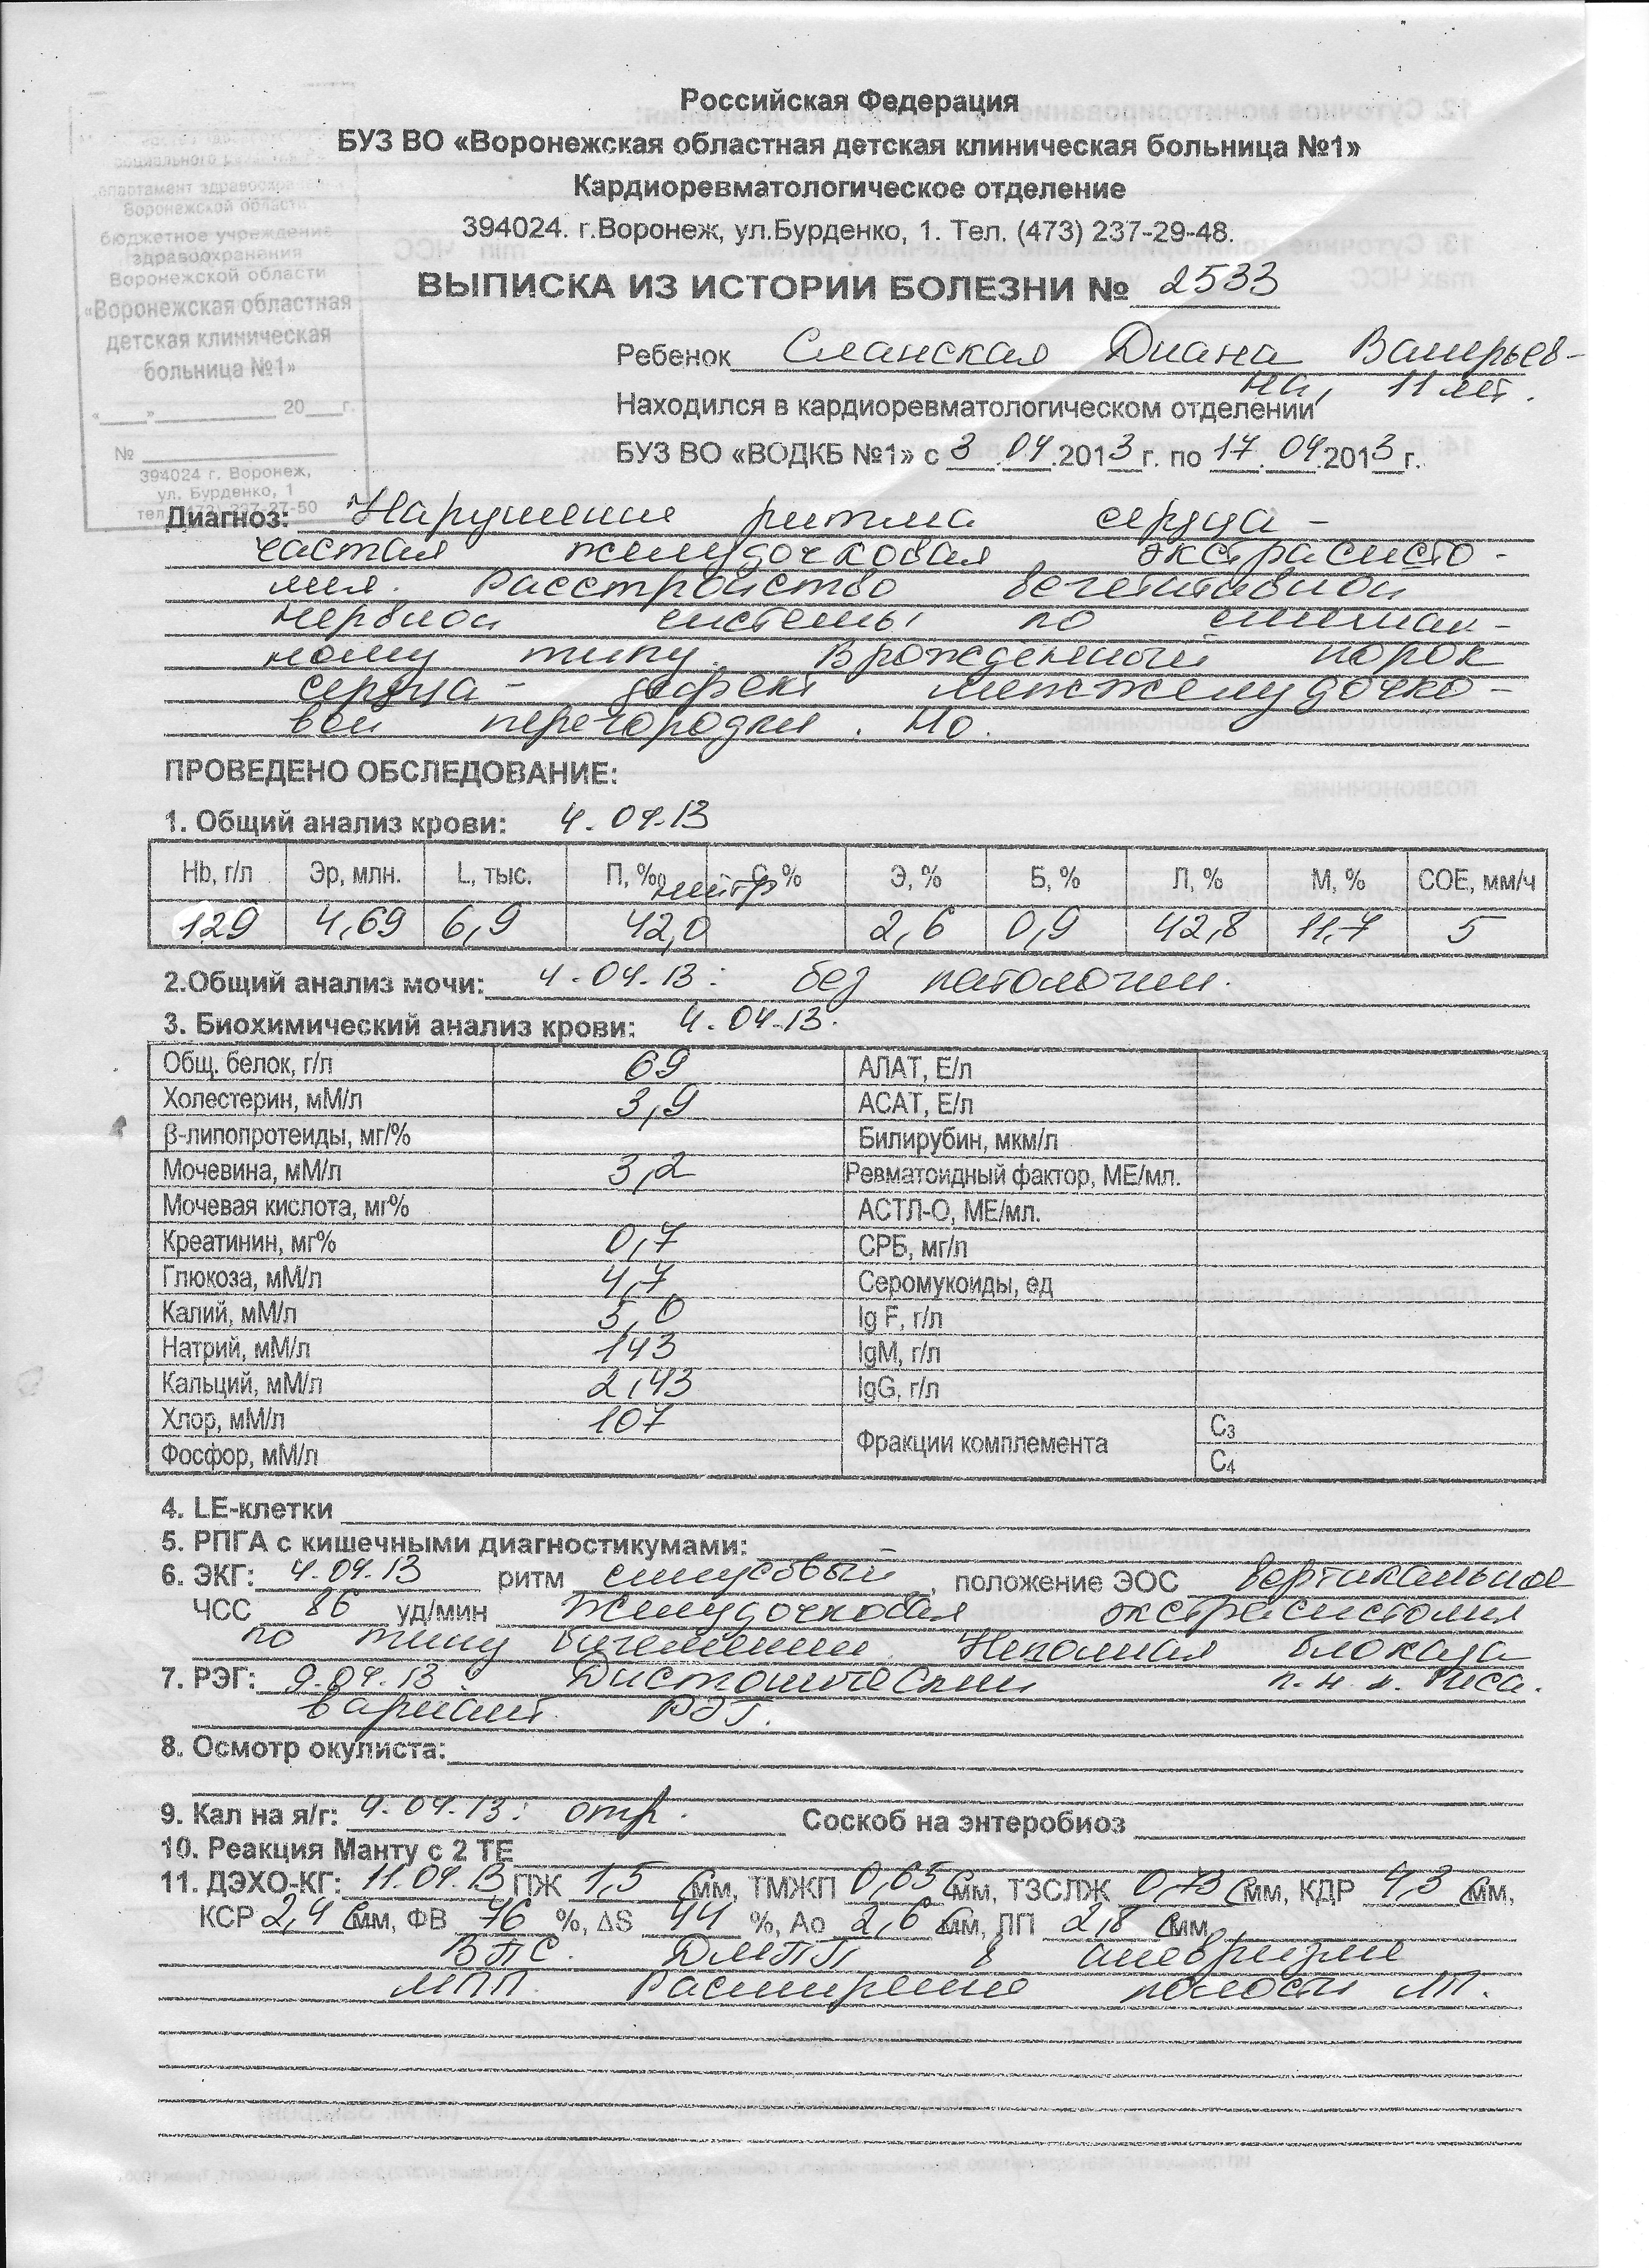 Российская Федерация
БУЗ ВО «Воронежская областная детская клиническая больница №1»
Кардиоревматологическое отделение
394024. г.Воронеж, ул.Бурденко, 1. Тел. (473) 237-29-48.
ВЫПИСКА ИЗ ИСТОРИИ БОЛЕЗНИ № 2533
социального
департамент здравоохранения
Воронежской области
бюджетное учреждение
здравоохранения
Воронежской области
«Воронежская областная
детская клиническая
больница №1»
«___»__________ 20___г.
№
394024 г. Воронеж,
ул. Бурденко, 1
тел. 237-27-50
Ребенок Сланская Диана Валерьев-
на, 11 лет.
Находился в кардиоревматологическом отделении
БУЗ ВО «ВОДКБ №1» с 3.04.2013г. по 17.04.2013г.
Диагноз: Нарушение ритма сердца -
частая желудочковая экстрасисто-
лия. Расстройство вегетативной
нервной системы по смешан-
ному типу. Врожденный порок
сердца - дефект межжелудочко-
вой перегородки. Но.
ПРОВЕДЕНО ОБСЛЕДОВАНИЕ:
1. Общий анализ крови: 4.04.13
Hb, г/л Эр, млн. L, тыс. П, % С, % Э, % Б, % Л, % М, % СОЕ, мм/ч
нейтр
129 4,69 6,9 42,0 2,6 0,9 42,8 11,7 5
2.Общий анализ мочи: 4.04.13: без патологии.
3. Биохимический анализ крови: 4.04.13.
Общ. белок, г/л 69 АЛАТ, Е/л
Холестерин, мМ/л 3,9 АСАТ, Е/л
β-липопротеиды, мг/% Билирубин, мкм/л
Мочевина, мМ/л 3,2 Ревматоидный фактор, МЕ/мл.
Мочевая кислота, мг% АСТЛ-О, МЕ/мл.
Креатинин, мг% 0,7 СРБ, мг/л
Глюкоза, мМ/л 4,7 Серомукоиды, ед
Калий, мМ/л 5,0 Ig F, г/л
Натрий, мМ/л 143 IgM, г/л
Кальций, мМ/л 2,43 IgG, г/л
Хлор, мМ/л 107 Фракции комплемента С3
Фосфор, мМ/л С4
4. LE-клетки
5. РПГА с кишечными диагностикумами: –
6. ЭКГ: 4.04.13 ритм синусовый, положение ЭОС вертикальное
ЧСС 86 уд/мин желудочковая экстрасистолия
по типу бигемении. Неполная блокада
п. н. п. Гиса.
7. РЭГ: 9.04.13: Дистонический
вариант РЭГ.
8. Осмотр окулиста:
9. Кал на я/г: 4.04.13: отр. Соскоб на энтеробиоз
10. Реакция Манту с 2 ТЕ
11. ДЭХО-КГ: 11.04.13 ПЖ 1,5 смм, ТМЖП 0,65 смм, ТЗСЛЖ 0,73 смм, КДР 4,3 смм,
КСР 2,4 смм, ФВ 76 %, ΔS 44 %, Ао 2,6 смм, ЛП 2,8 смм
ВПС. ДМПП в аневризме
МПП. Расширение полости ЛП.